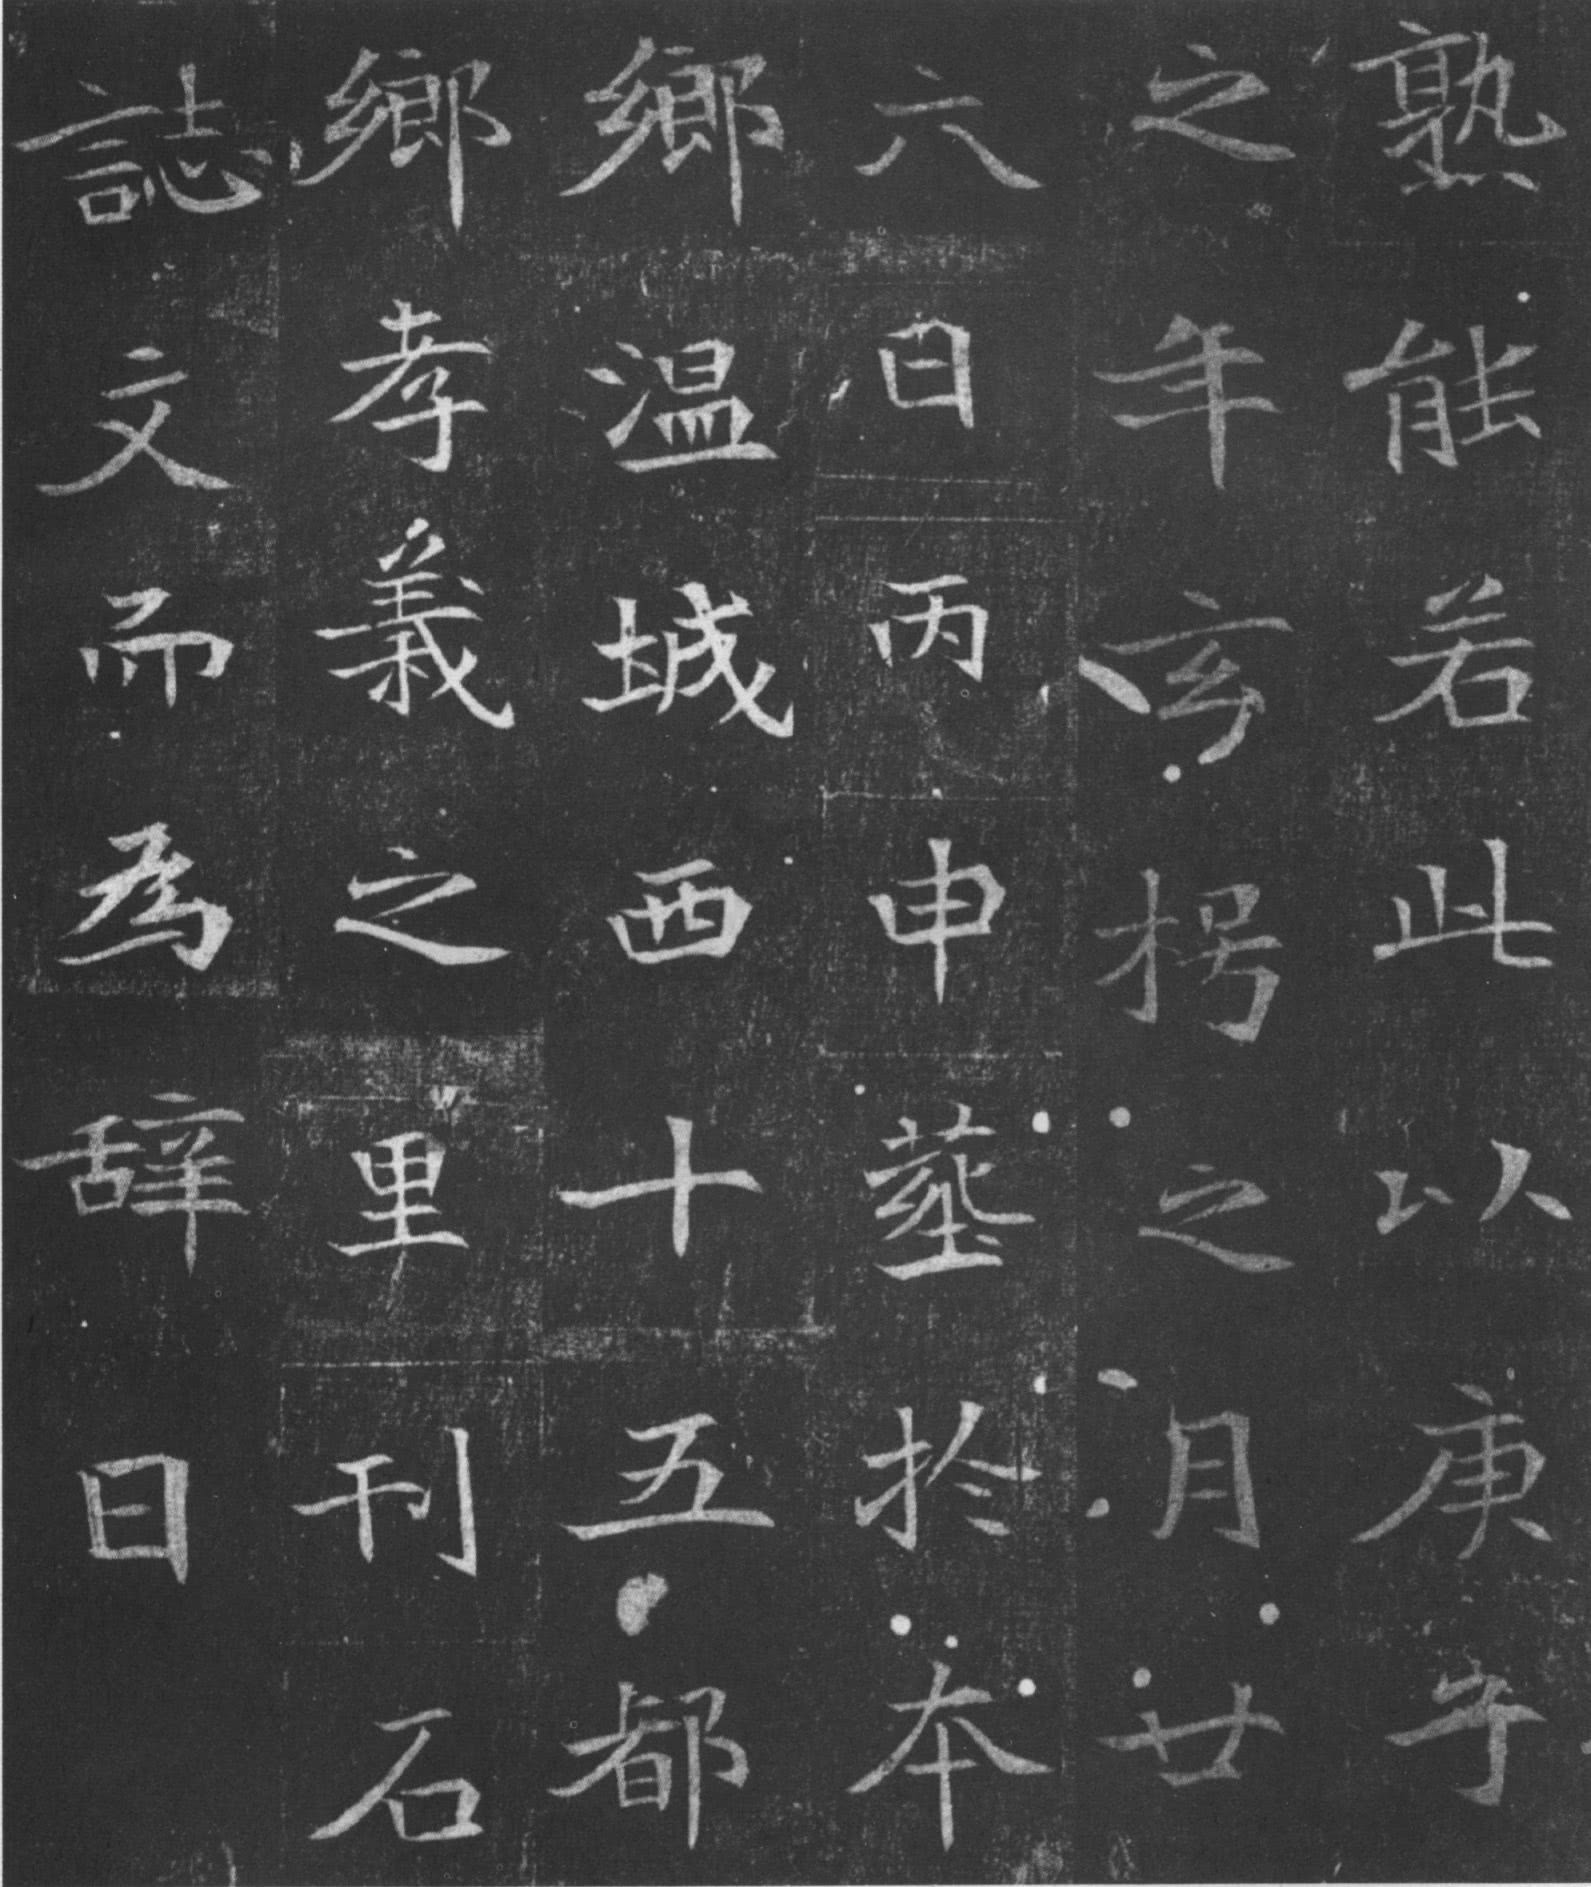 熟能若此以庚子
之年玄枵之月廿
六日丙申葬於本
鄉温城西十五都
鄉孝義之里刊石
誌文而為辞曰